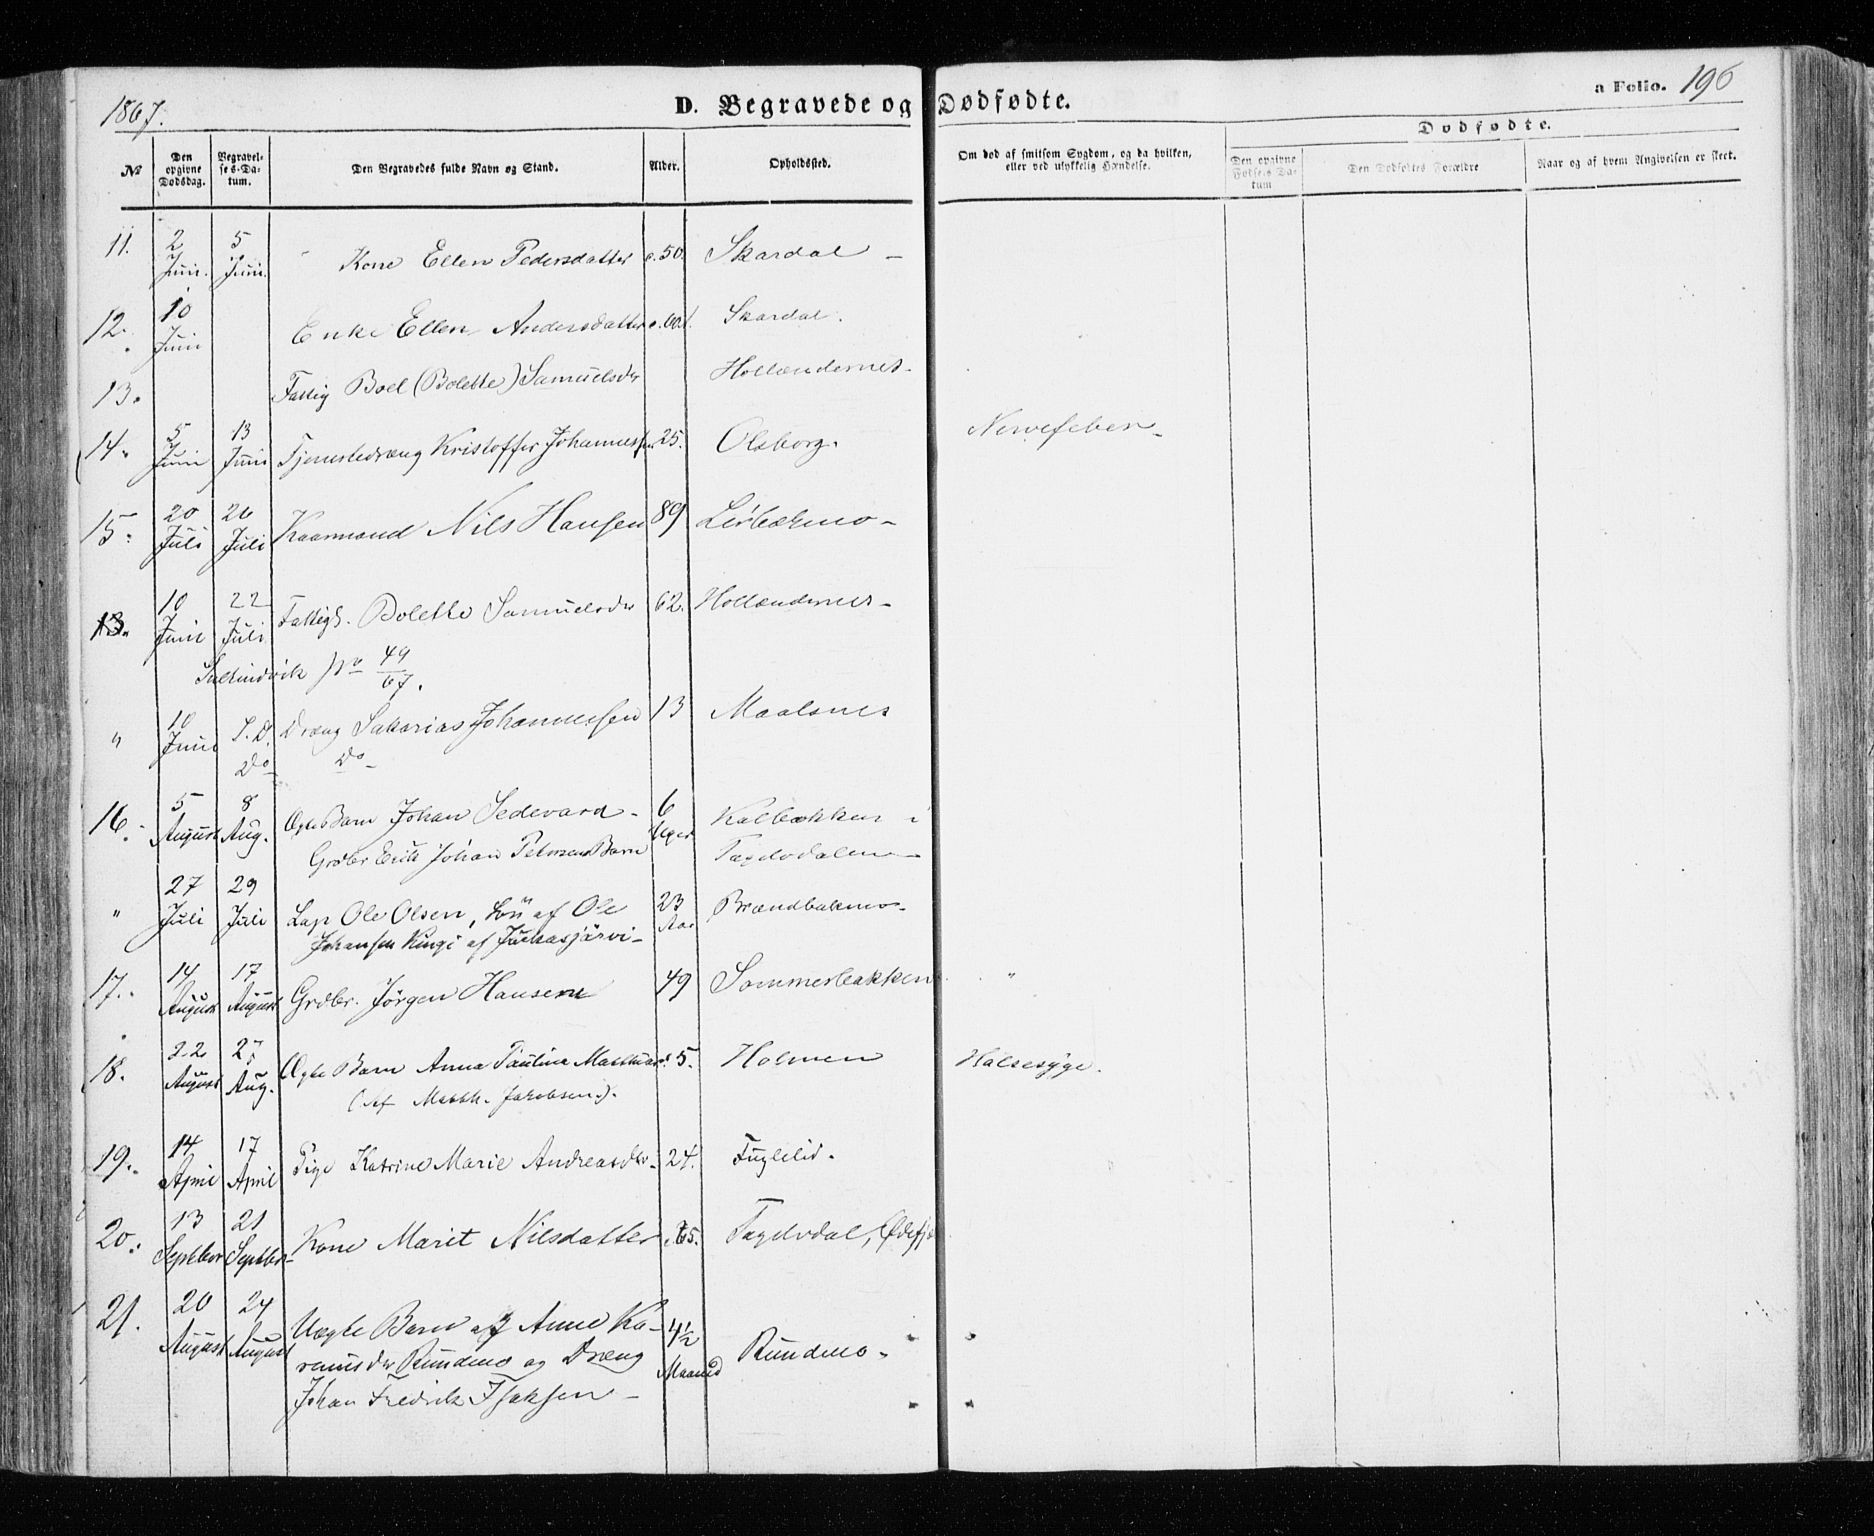 1867.
D. Begravede og Dødfødte.
a Folio. 196
No
Den opgivne Dødsdag.
Begravelses-Datum.
Den Begravedes fulde Navn og Stand.
Alder.
Opholdssted.
Om død af smitsom Sygdom, og da hvilken, eller ved ulykkelig Hændelse.
Dødfødte.
Den opgivne Fødsels-Datum
Den Dødfødtes Forældre
Naar og af hvem Angivelsen er skeet.
11. 2 Juni. 5 Juni. Kone Ellen Pedersdatter c. 50. Skardal
12. 10 Juni Enke Ellen Andersdatter c. 60. Skardal.
13. Fattig Boel (Bolette) Samuelsdr Hollændernes.
14. 5 Juni 13 Juni Tjenestedreng Kristoffer Johannessen 25. Olsborg. Nervefeber
15. 20 Juli 26 Juli Kaarmand Nils Hansen 89
13. 10 Juni 22 Juli Fattigl. Bolette Samuelsdr 62. Hollændernes
No 49/67.
" 10 Juni S. D. Dreng Sakarias Johannessen 13 Maalsnes
Do Do
16. 5 August 8 Aug. Ægte Barn Johan Sedevard 6 Uger Kalbækken i
Grdbr Erik Johan Petersens Barn Tagelvdalen
" 27 Juli 29 Juli Lap Ole Olsen, Søn af Ole 23 Aar Brændbakmo
Johansen Kingi af Jukasjärvi
17. 14 August 17 August Grdbr. Jörgen Hansen 49 Sommerbakken "
18. 22 August 27 Aug. Ægte Barn Anna Paulina 5. Holmen Halsesyge.
(Af Matth. Jacobsen).
19. 14 April 17 April Pige Katrine Marie Andreasdr 24. Fuglelid.
20. 13 Septber 21 Septber Kone Marit Nilsdatter 65. Tagelvdal,
21. 20 August 24 August Uægte Barn af Anne Ka- 4½ Maaned Rundmo.
Rundmo og Dreng
Johan Fredrik Isaksen